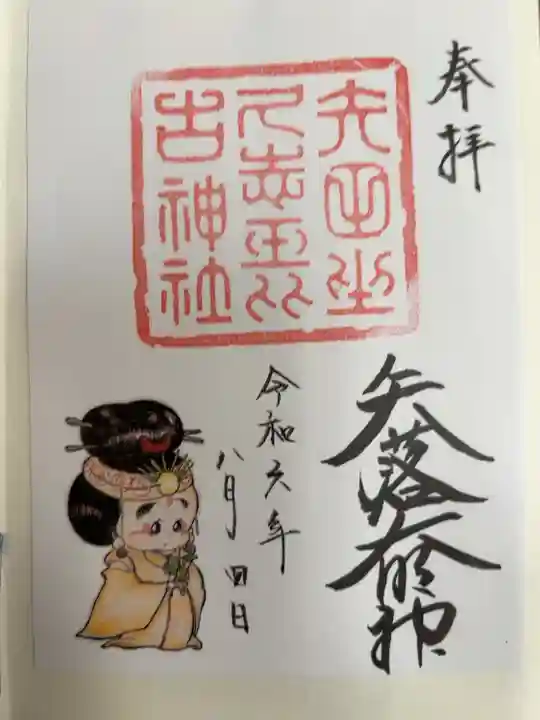 奉拝
矢田坐
久志玉比
古神社
矢落大明神
令和六年
八月四日